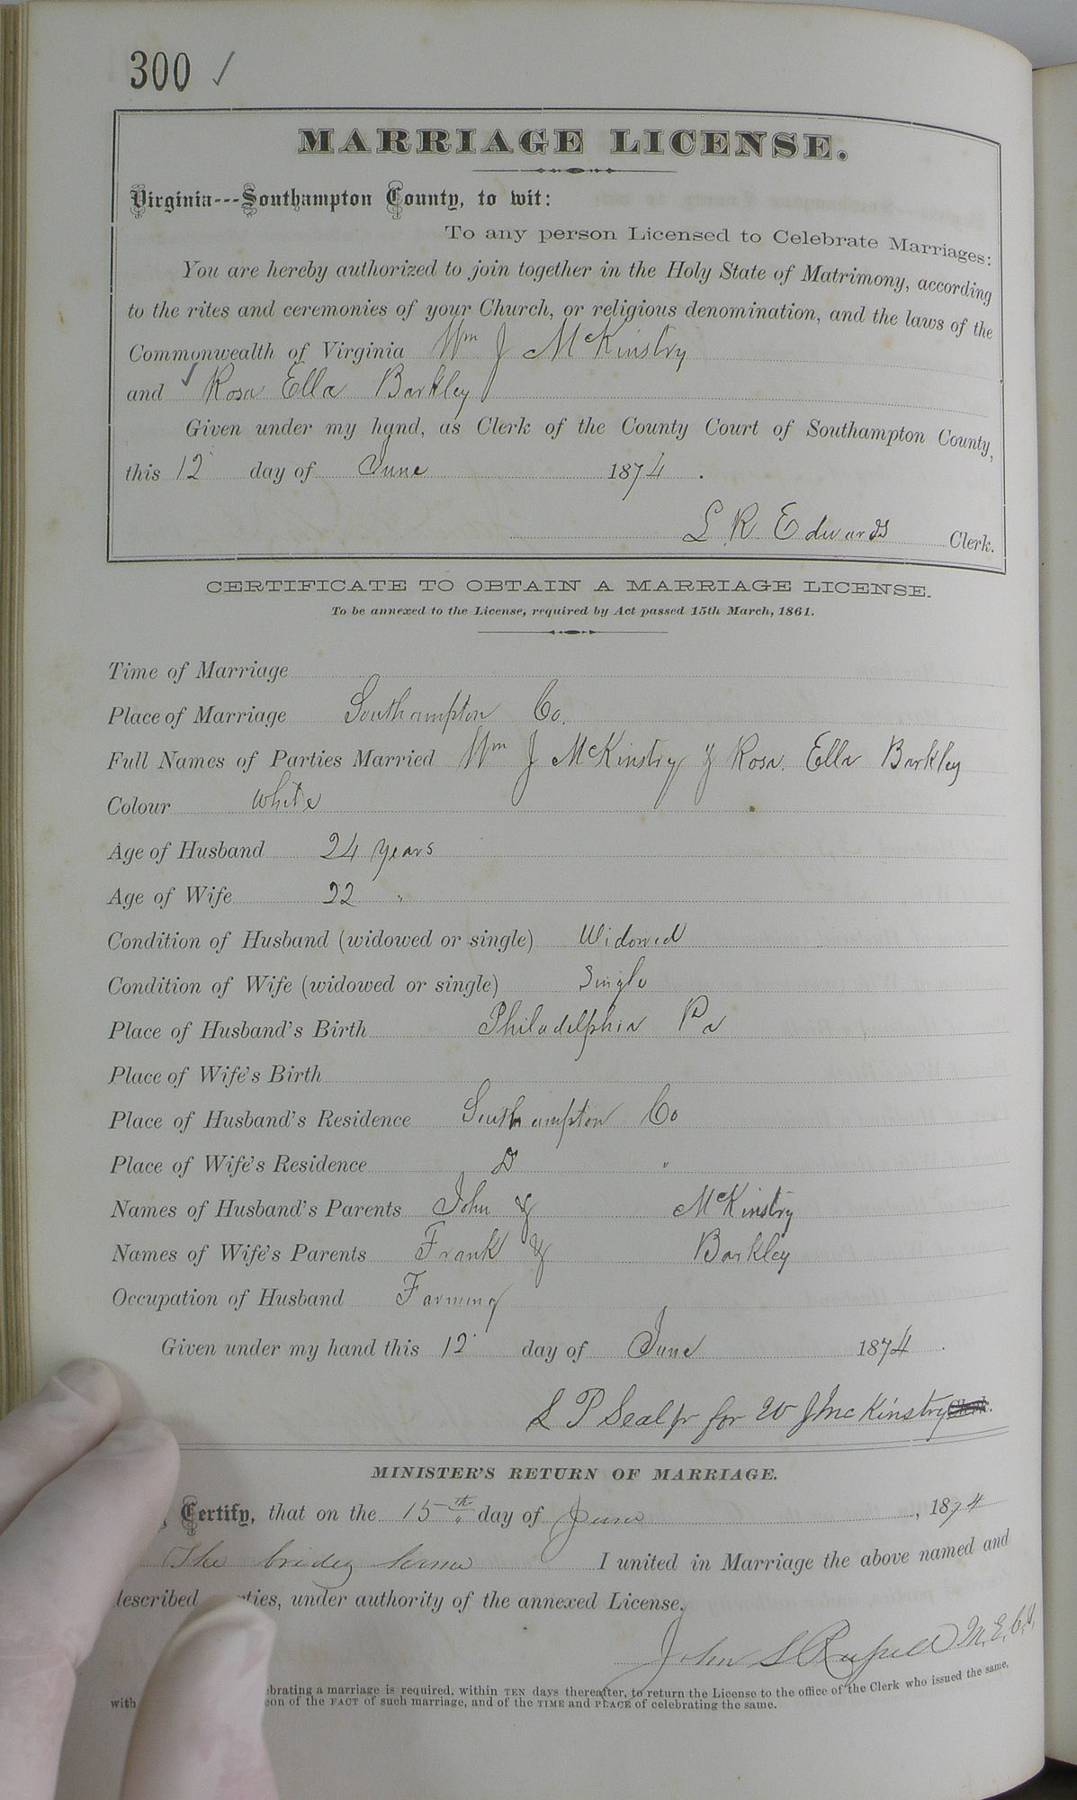 300 ✓
MARRIAGE LICENSE.
Virginia---Southampton County, to wit:
To any person Licensed to Celebrate Marriages:
You are hereby authorized to join together in the Holy State of Matrimony, according
to the rites and ceremonies of your Church, or religious denomination, and the laws of the
Commonwealth of Virginia Wm J McKinstry
and ✓ Rosa Ella Barkley
Given under my hand, as Clerk of the County Court of Southampton County,
this 12 day of June 1874.
L R Edwards Clerk.
CERTIFICATE TO OBTAIN A MARRIAGE LICENSE.
To be annexed to the License, required by Act passed 15th March, 1861.
Time of Marriage
Place of Marriage Southampton Co.
Full Names of Parties Married Wm J McKinstry & Rosa Ella Barkley
Colour White
Age of Husband 24 years
Age of Wife 22 "
Condition of Husband (widowed or single) Widowed
Condition of Wife (widowed or single) Single
Place of Husband's Birth Philadelphia Pa
Place of Wife's Birth
Place of Husband's Residence Southampton Co
Place of Wife's Residence Do "
Names of Husband's Parents John & McKinstry
Names of Wife's Parents Frank & Barkley
Occupation of Husband Farming
Given under my hand this 12 day of June 1874.
for W J McKinstry Clerk.
MINISTER'S RETURN OF MARRIAGE.
Certify, that on the 15th day of June, 1874
The brides home I united in Marriage the above named and
described parties, under authority of the annexed License.
John S M.E.C.S.
brating a marriage is required, within TEN days thereafter, to return the License to the office of the Clerk who issued the same,
with son of the FACT of such marriage, and of the TIME and PLACE of celebrating the same.